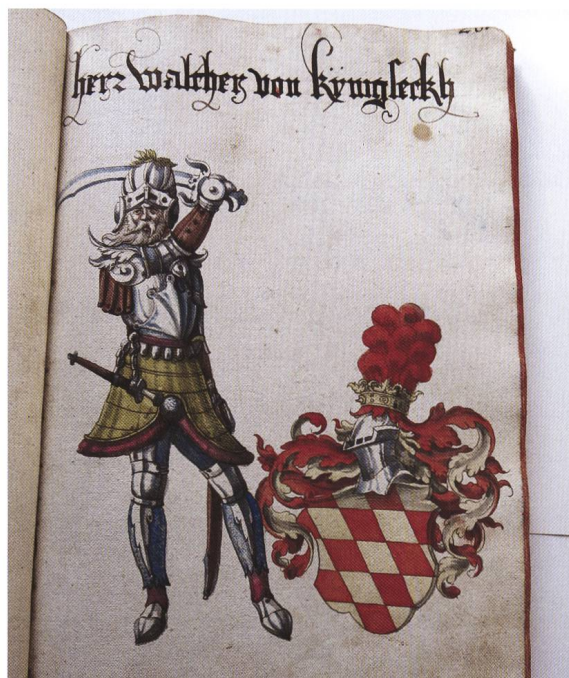 herz Walther von kÿnigseckh